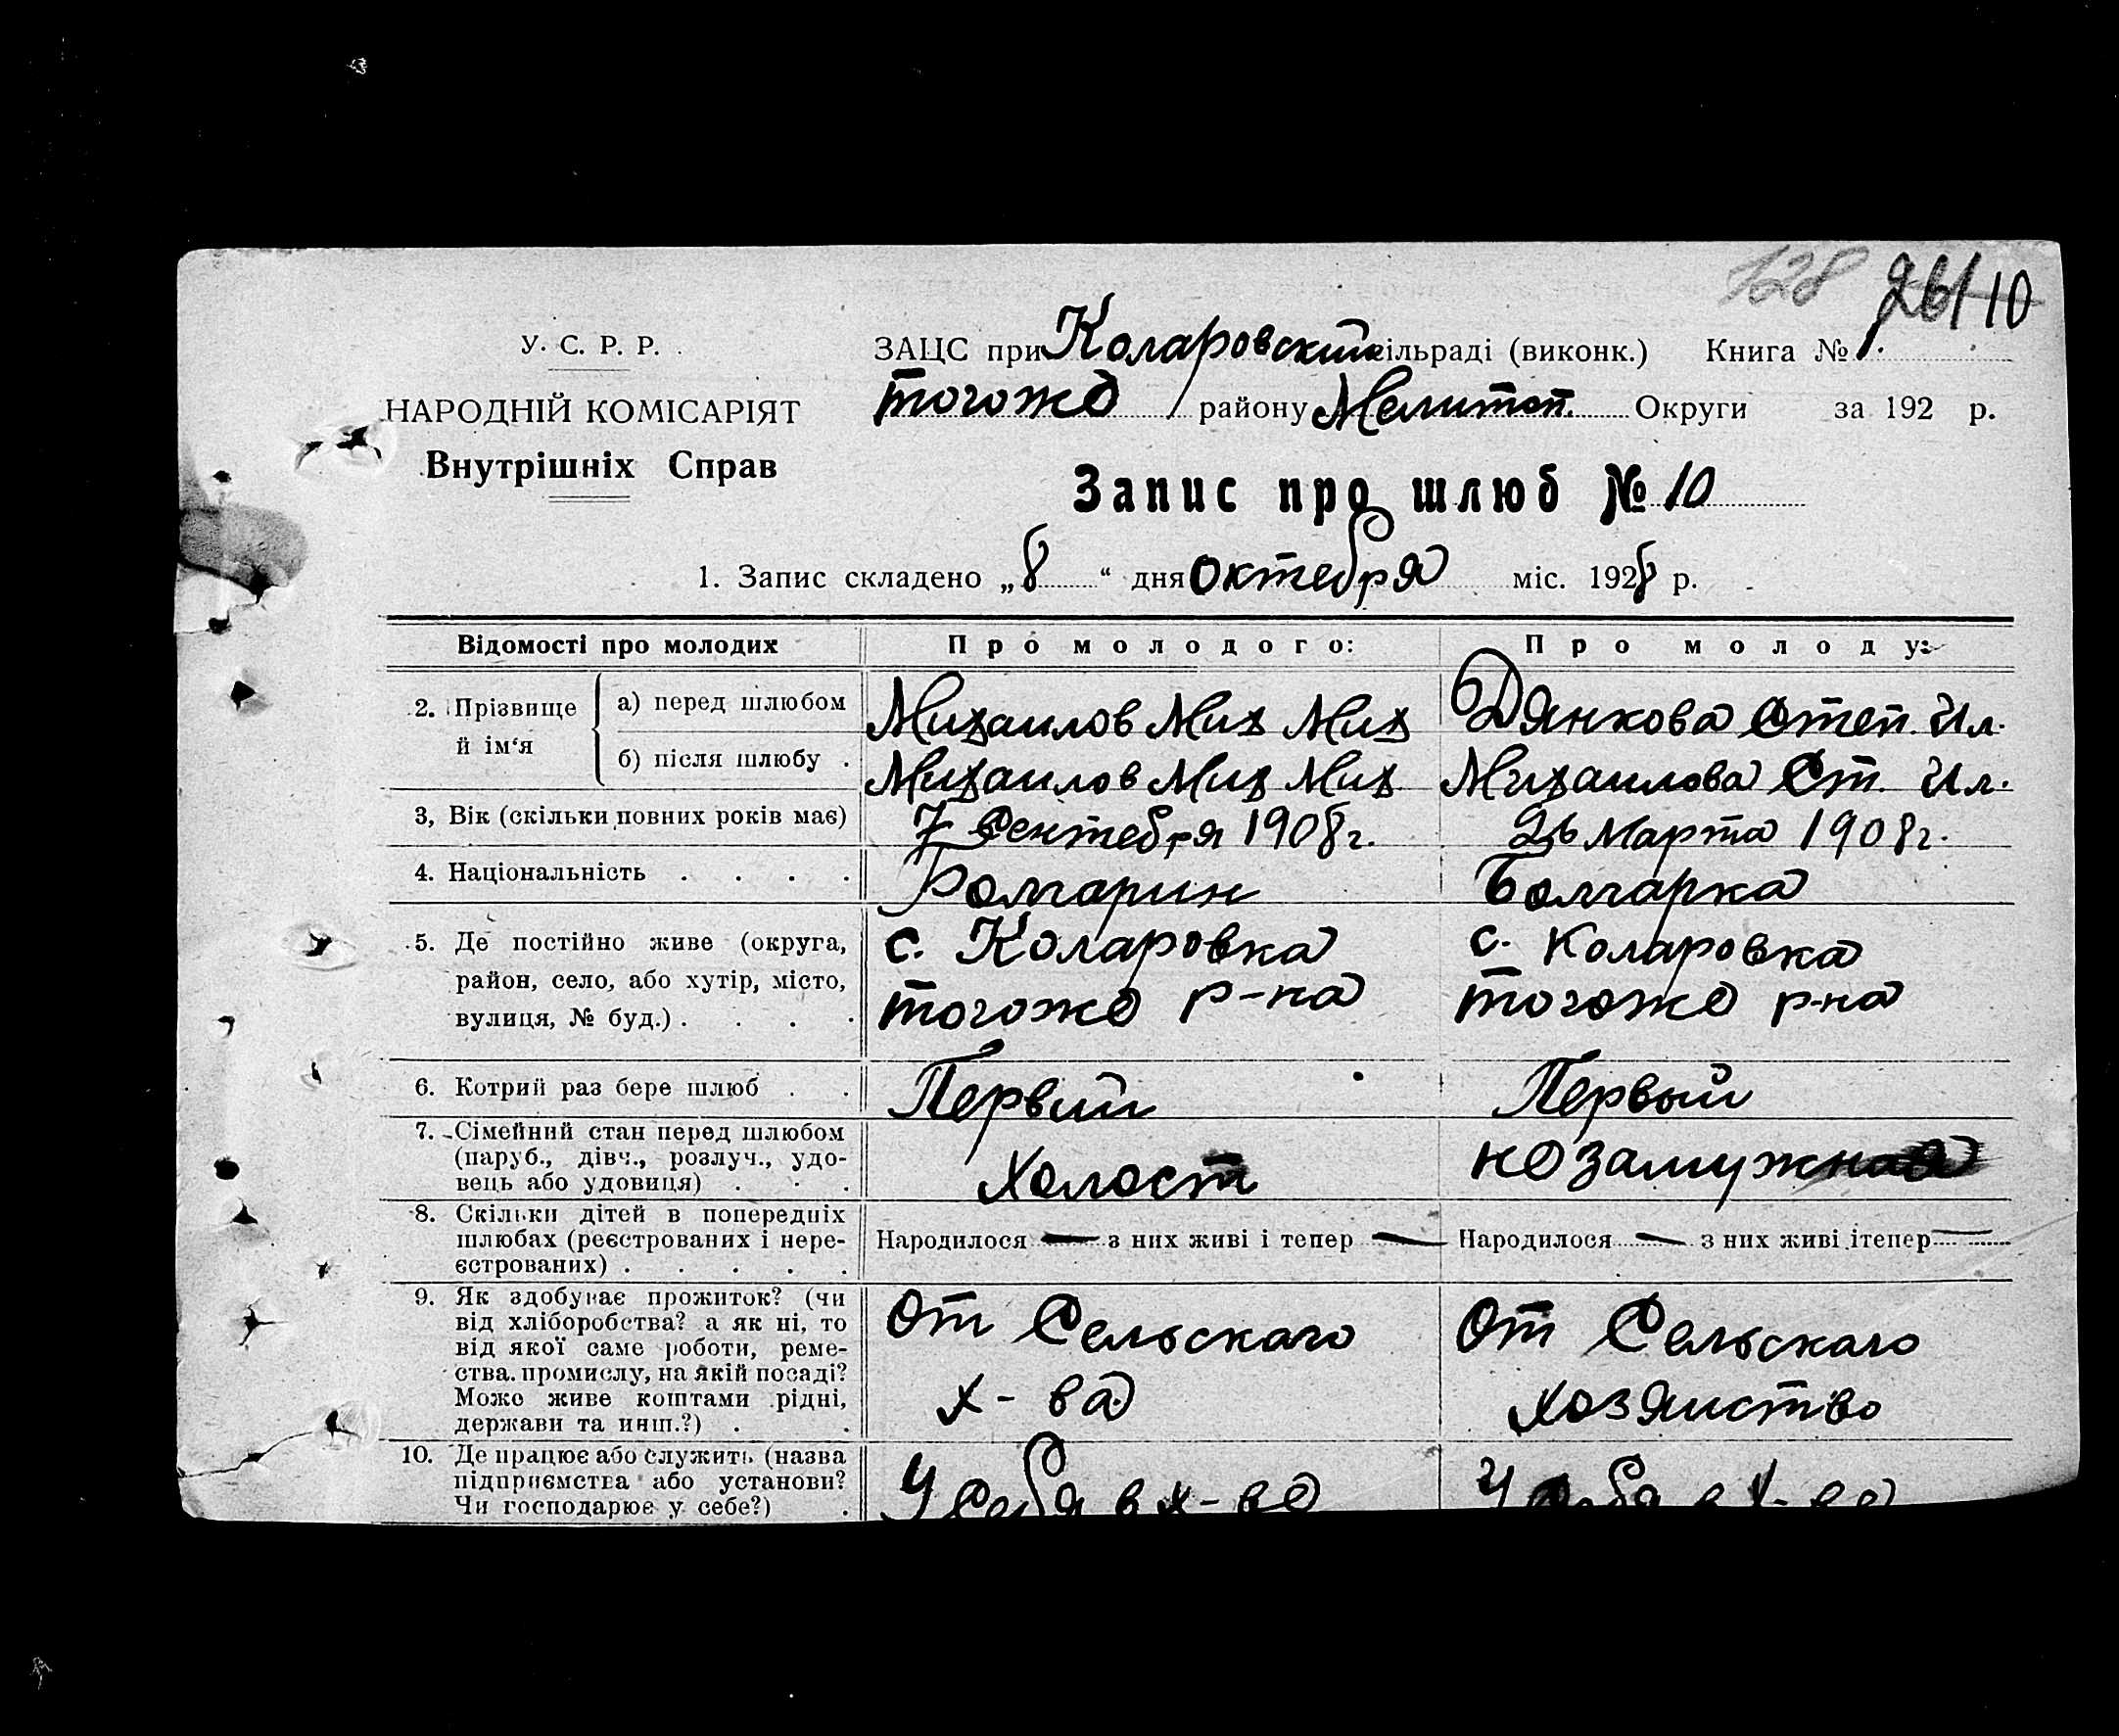 128 26/10
У. С. Р. Р.
НАРОДНІЙ КОМІСАРІЯТ
Внутрішніх Справ
ЗАЦС при Коларовский сільраді (виконк.) Книга № 1.
тогоже району Мелитоп. Округи за 192 р.
Запис про шлюб № 10
1. Запис складено „8“ дня октебря міс. 1928 р.
Відомості про молодих Про молодого: Про молоду:
2. Прізвище й ім‘я а) перед шлюбом Михаилов Мих Мих Дянкова Степ. Ил.
б) після шлюбу . Михаилов Мих Мих Михаилова Ст. Ил.
3, Вік (скільки повних років має) 7 Сентебря 1908 г. 26 Марта 1908 г.
4. Національність . . . . Болгарин Болгарка
5. Де постійно живе (округа, с. Коларовка с. Коларовка
район, село, або хутір, місто,
вулиця, № буд.) . . . . тогоже р-на тогоже р-на
6. Котрий раз бере шлюб . . Первий Первый
7. Сімейний стан перед шлюбом
(паруб., дівч., розлуч., удо- Холост незамужная
вець або удовиця) . . .
8. Скільки дітей в попередніх
шлюбах (реєстрованих і нере- Народилося — з них живі і тепер — Народилося — з них живі ітепер —
єстрованих) . . . . .
9. Як здобуває прожиток? (чи
від хліборобства? а як ні, то От Сельскаго От Сельскаго
від якої саме роботи, реме-
ства. промислу, на якій посаді?
Може живе коштами рідні, х-ва хозяиство
держави та инш.?) . .
10. Де працює або служить (назва
підприємства або установи? У себя в х-ве У себя в х-ве
Чи господарює у себе?) .